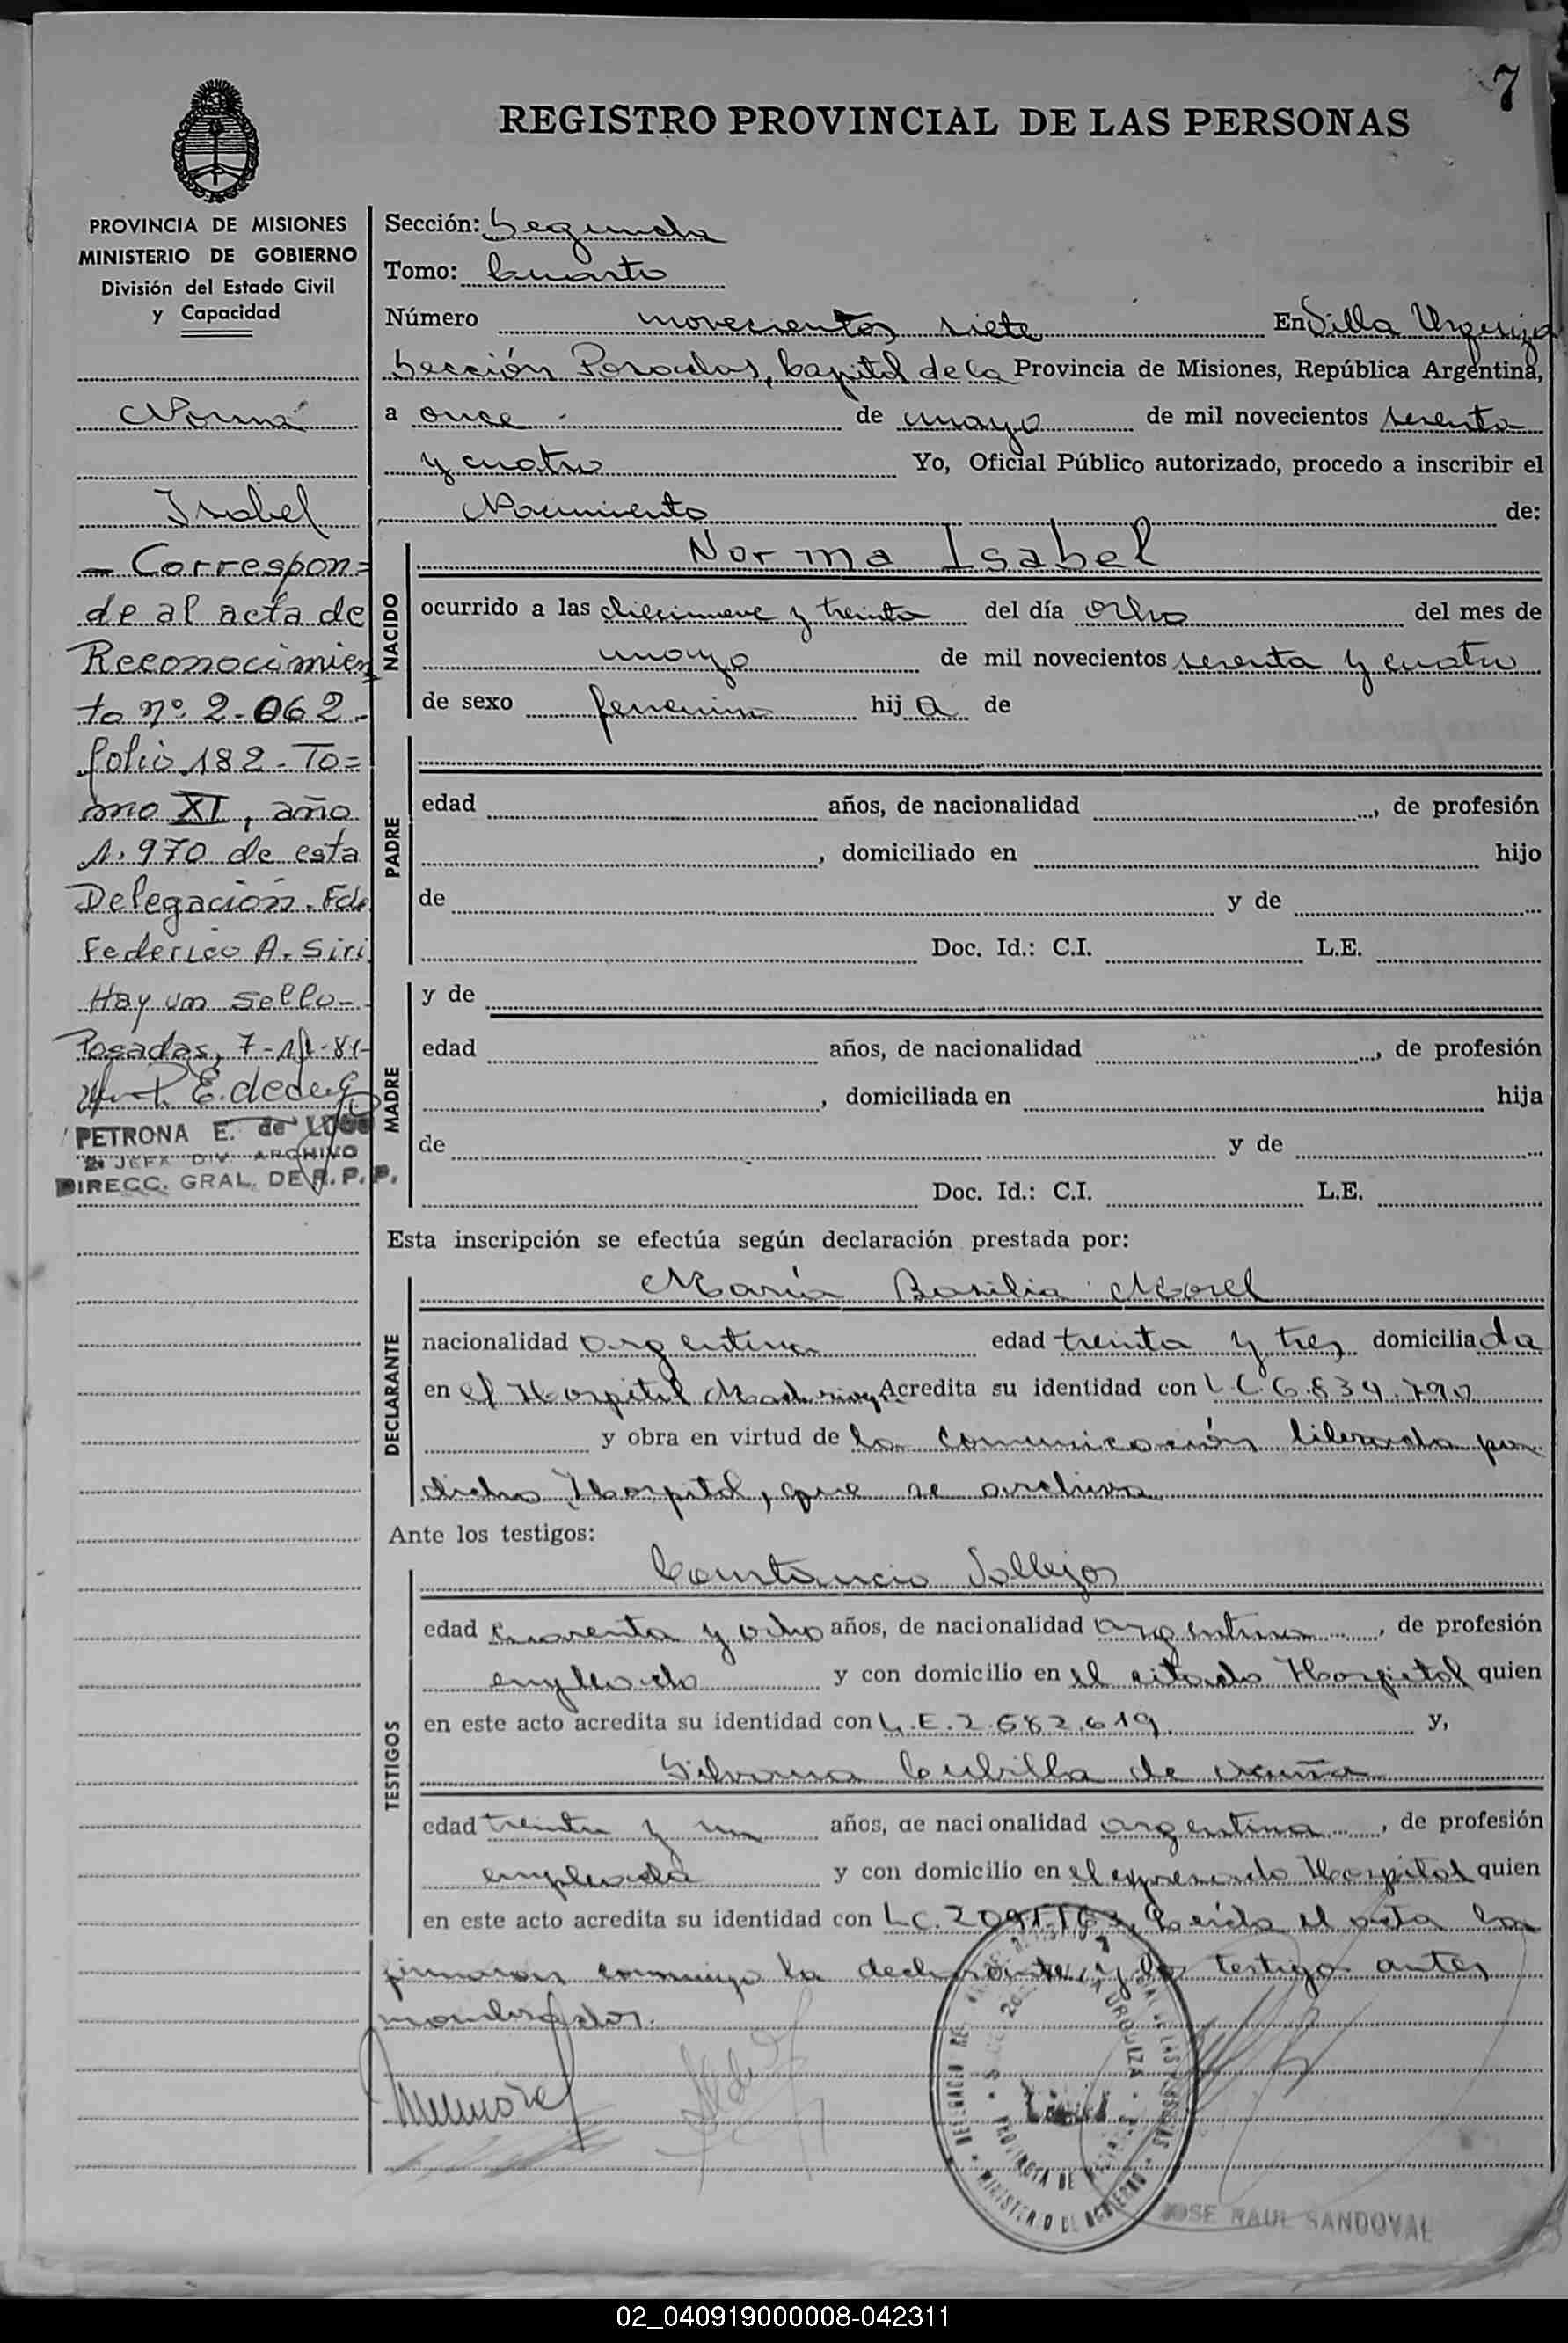 7
REGISTRO PROVINCIAL DE LAS PERSONAS
PROVINCIA DE MISIONES
MINISTERIO DE GOBIERNO
División del Estado Civil
y Capacidad
Norma
Isabel
— Correspon=
de al acta de
Reconocimien
to nº 2.062.
folio 182 - To=
mo XI, año
1.970 de esta
Delegación. Fdo
Federico A. Siri
Hay un sello -
Posadas, 7-
PETRONA E. de LUGO
JEFA DIV. ARCHIVO
DIRECC. GRAL. DE R. P. P.
Sección: Segunda
Tomo: Cuarto
Número novecientos siete En Villa Urquiza
Sección Posadas, Capital de la Provincia de Misiones, República Argentina,
a once - de mayo de mil novecientos sesenta
y cuatro Yo, Oficial Público autorizado, procedo a inscribir el
Nacimiento de:
NACIDO
Norma Isabel
ocurrido a las diecinueve y treinta del día ocho del mes de
mayo de mil novecientos sesenta y cuatro
de sexo femenino hij a de
PADRE
edad años, de nacionalidad , de profesión
, domiciliado en hijo
de y de
Doc. Id.: C.I. L.E.
MADRE
y de
edad años, de nacionalidad , de profesión
, domiciliada en hija
de y de
Doc. Id.: C.I. L.E.
Esta inscripción se efectúa según declaración prestada por:
DECLARANTE
María Basilia Morel
nacionalidad argentina edad treinta y tres domiciliada
en el Hospital Madariaga Acredita su identidad con L.C. 6.834.790
y obra en virtud de la comunicación librada por
dicho Hospital, que se archiva
Ante los testigos:
TESTIGOS
Constancio Vallejos
edad cuarenta y ocho años, de nacionalidad argentina , de profesión
empleado y con domicilio en el citado Hospital quien
en este acto acredita su identidad con L.E. 2.682.619. y,
Silvana Cubilla de Acuña
edad treinta y un años, de nacionalidad argentina , de profesión
empleada y con domicilio en el expresado Hospital quien
en este acto acredita su identidad con L.C. Leída el acta la
firmaron conmigo la declarante, y los testigos antes
nombrados.
URQUIZA
PROVINCIA DE
MINISTERIO DE GOBIERNO
JOSE RAUL SANDOVAL
02_040919000008-042311